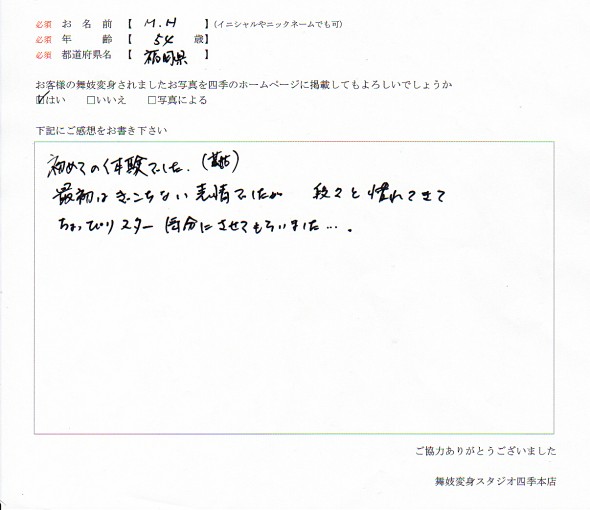 必須 お 名 前 【 M.H 】(イニシャルやニックネームでも可)
必須 年 齢 【 54 歳】
必須 都道府県名 【 福岡県 】
お客様の舞妓変身されましたお写真を四季のホームページに掲載してもよろしいでしょうか
☑はい □いいえ □写真による
下記にご感想をお書き下さい
初めての体験でした.
最初はぎこちない表情でしたが 段々と慣れてきて
ちょっぴりスター気分にさせてもらいました….
ご協力ありがとうございました
舞妓変身スタジオ四季本店